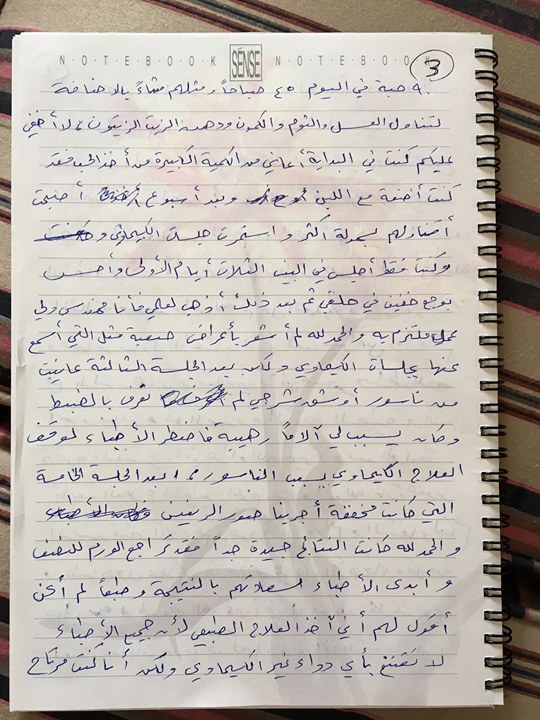 NOTEBOOK SENSE NOTEBOOK
3
٩٠ حبة في اليوم ٤٥ صباحاً ومثلهم مساءً بالاضافة
لتناول العسل والثوم والكمون ودهن الزيت الزيتون، لا أخفي
عليكم كنت في البداية أعاني من الكمية الكبيرة من أخذ الحب فقد
كنت أضعه مع اللبن وبعد أسبوع أصبحت
أتناولهم بسهولة أكثر و استمرت جلسات الكيماوي و
وكنت فقط أجلس في البيت الثلاث أيام الأولى وأحس
بوجع خفيف في حلقي ثم بعد ذلك أذهب لعملي فأنا مهندس ولي
عمل ملتزم به والحمد لله لم أشعر بأعراض صعبة مثل التي أسمع
عنها بجلسات الكيماوي ولكن بعد الجلسة الثالثة عانيت
من ناسور أو شق شرجي لم نعرف بالضبط
وكان يسبب لي آلاماً رهيبة فاضطر الأطباء لوقف
العلاج الكيماوي بسبب الناسور، بعد الجلسة الخامسة
التي كانت مخففة أجرينا صور الرنين
و الحمد لله كانت النتائج جيدة جداً فقد تراجع الورم للنصف
و أبدى الأطباء سعادتهم بالنتيجة وطبعاً لم أكن
أقول لهم أني آخذ العلاج الطبيعي لأن جميع الأطباء
لا تقتنع بأي دواء غير الكيماوي ولكن أنا كنت مرتاح